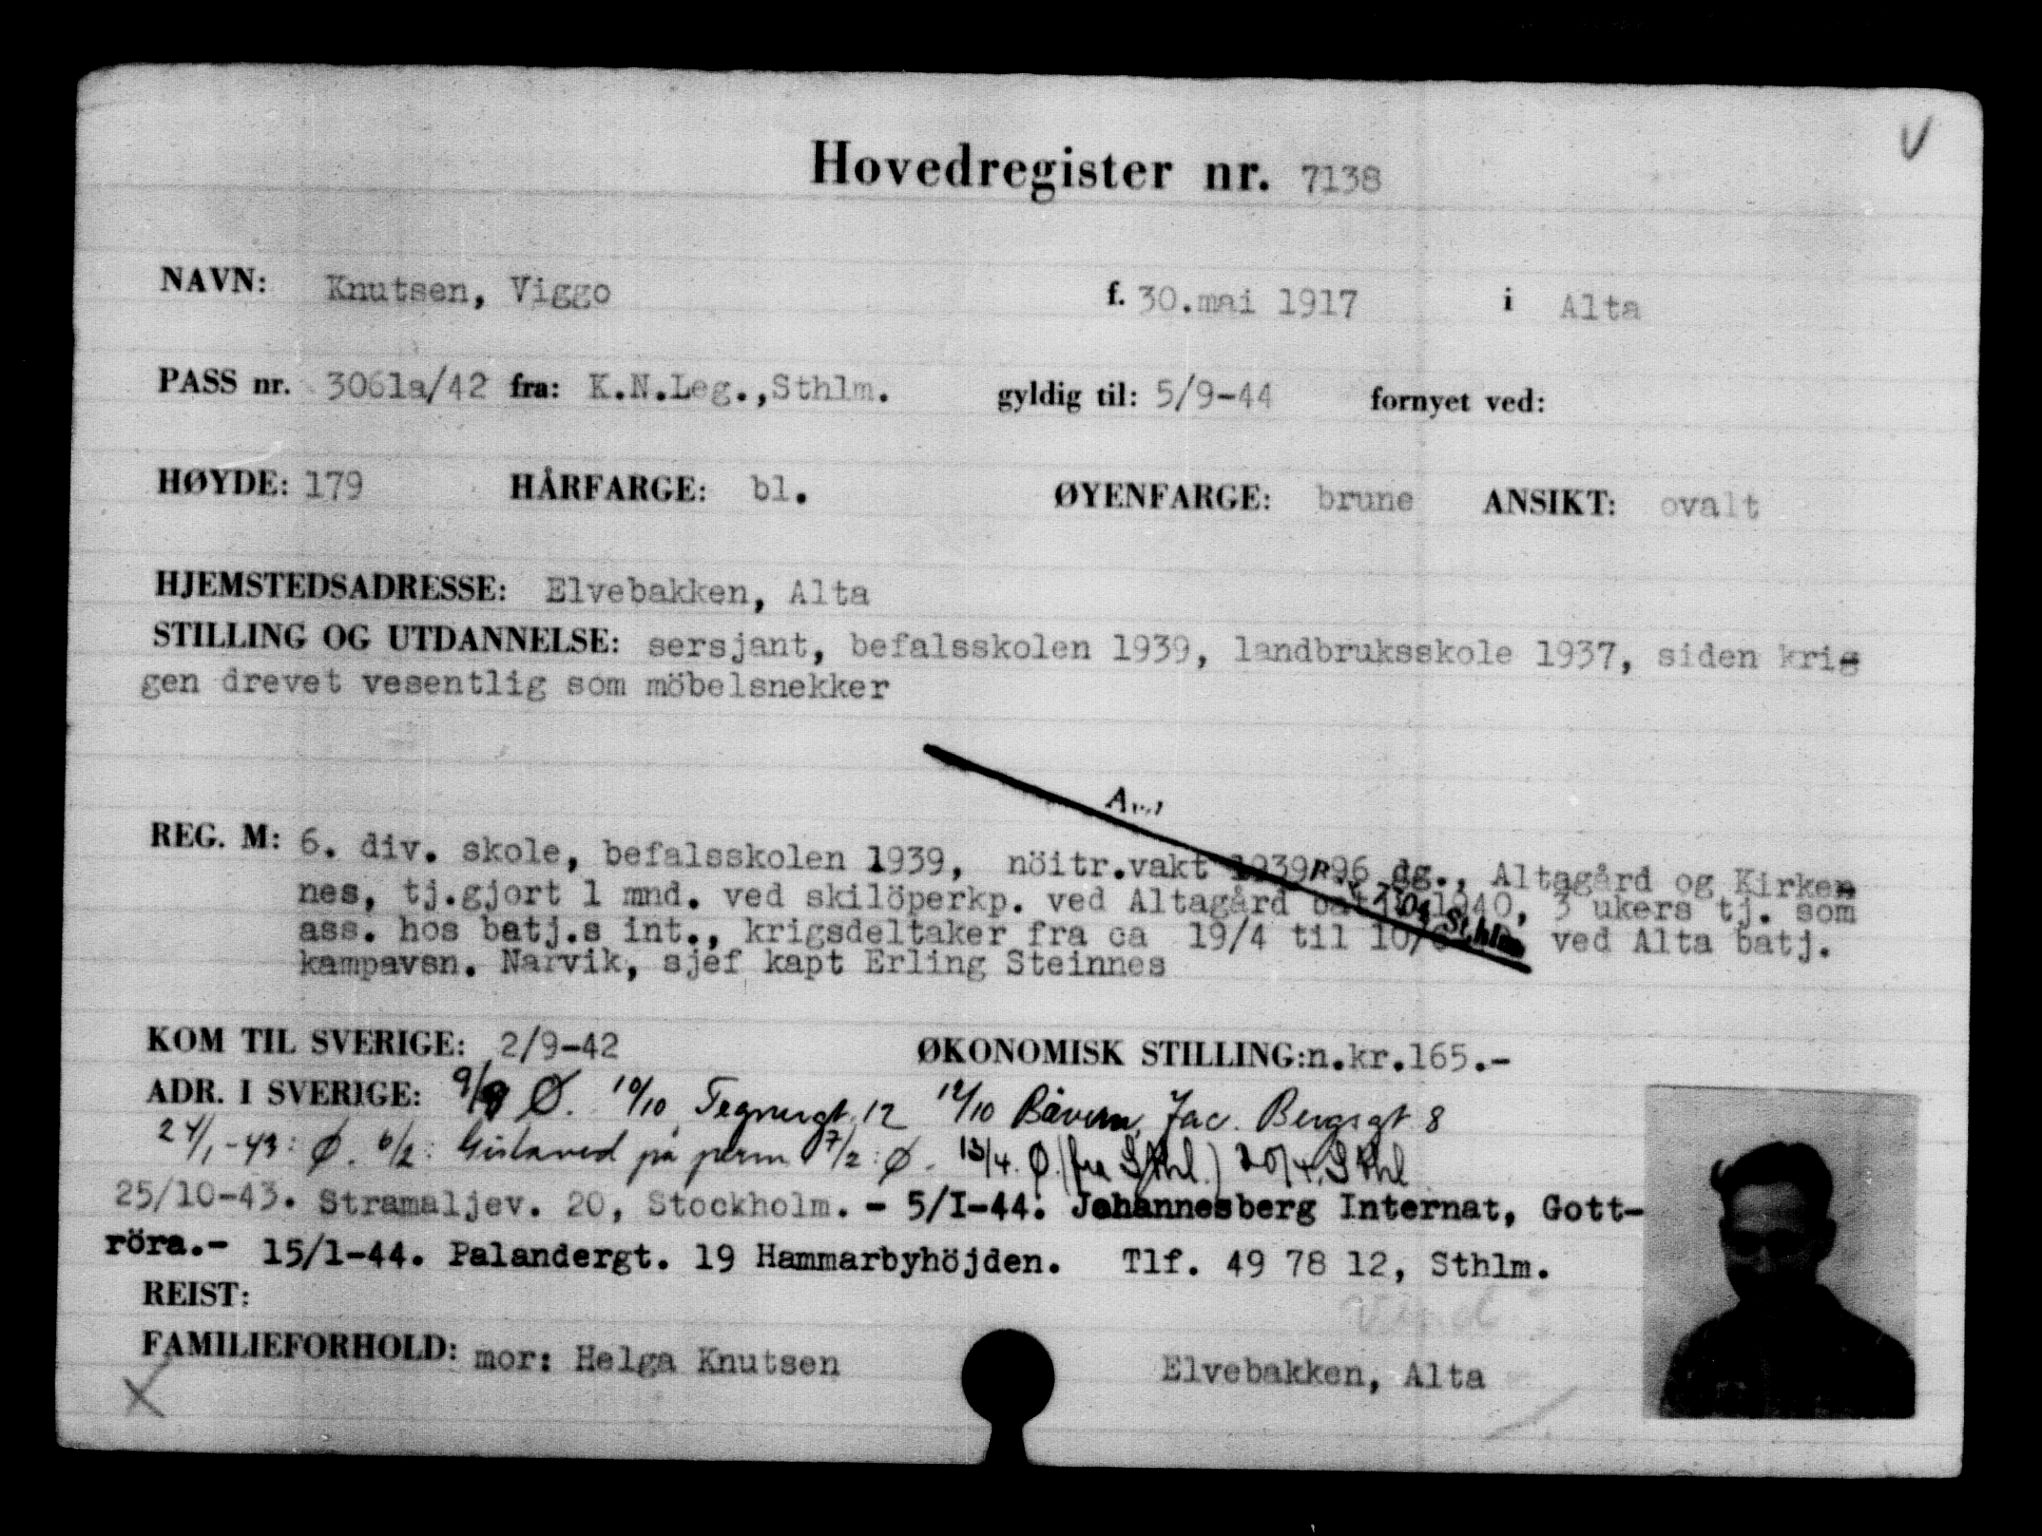 V
Hovedregister nr. 7138
NAVN: Knutsen, Viggo f. 30.mai 1917 i Alta
PASS nr. 3061a/42 fra: K.N.Leg.,Sthlm. gyldig til: 5/9-44 fornyet ved:
HØYDE: 179 HÅRFARGE: bl. ØYENFARGE: brune ANSIKT: ovalt
HJEMSTEDSADRESSE: Elvebakken, Alta
STILLING OG UTDANNELSE: sersjant, befalsskolen 1939, landbruksskole 1937, siden krig
gen drevet vesentlig som möbelsnekker
REG. M: 6. div. skole, befalsskolen 1939, nöitr.vakt 1939 96 dg., Altagård og Kirken
nes, tj.gjort 1 mnd. ved skilöperkp. ved Altagård 1940, 3 ukers tj. som
ass. hos batj.s int., krigsdeltaker fra ca 19/4 til ved Alta batj.
kampavsn. Narvik, sjef kapt Erling Steinnes
KOM TIL SVERIGE: 2/9-42 ØKONOMISK STILLING: n.kr.165.-
ADR. I SVERIGE: 9/9 Ø. 10/10 Tegnergt. 12 12/10 Jac. Bergsgt 8
24/1-43: Ø. 6/2: Gislaved på perm 7/2: Ø. 13/4. Ø. (fra Sthl.) 20/4 Sthl
25/10-43. Stramaljev. 20, Stockholm. - 5/I-44. Johannesberg Internat, Gott-
röra.- 15/1-44. Palandergt. 19 Hammarbyhöjden. Tlf. 49 78 12, Sthlm.
REIST:
FAMILIEFORHOLD: mor: Helga Knutsen Elvebakken, Alta
X